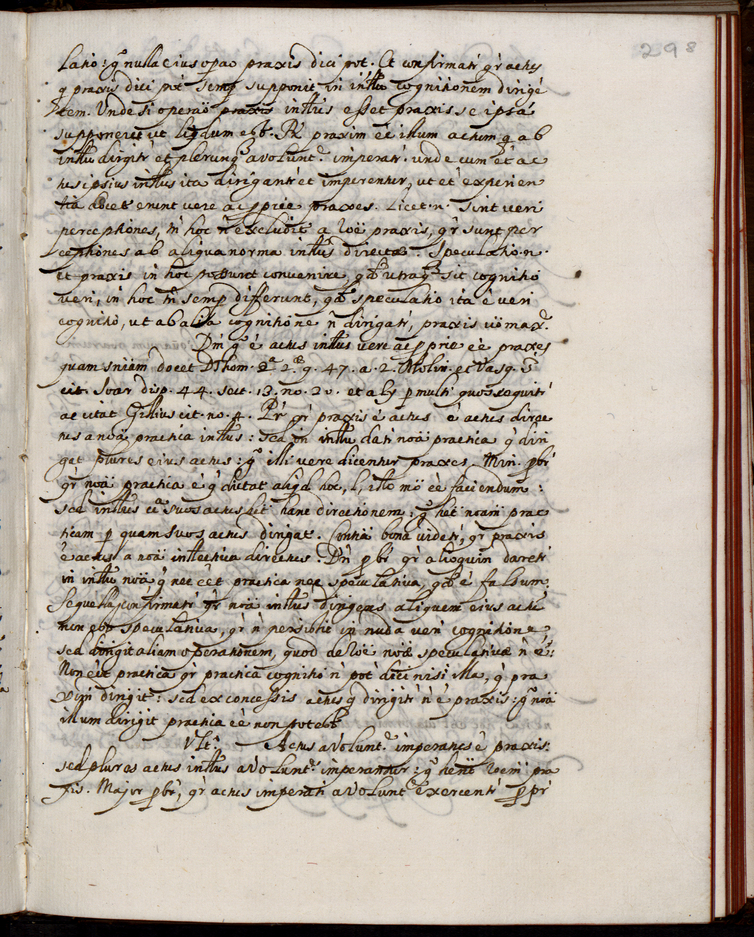 298
latio: qͣ nulla eius opaõ praxis dici pot. Et confirmatr̃ qr̃ actus
q praxis dici põt semꝑ supponit in intũ cognitionem dirigẽ
tem. Unde si operaõ intũs esset praxis se ipsã
supponeret ut Rͤ praxim eẽ illum actum q ab
intũ dirigitr̃ et plerunqꝫ a volunt.ͤ imperatr̃. unde cum ac
tus ipsius intũs ita dirigantr̃ et imperentur, ut et experien
tia docet erunt vere ac ꝓprie praxes. Licet .n. sint veri
perceptiones, in hoc ñ excludit a roẽ praxis, qr̃ sunt per
ceptiones ab aliqua norma intũs directae. Speculatio .n.
et praxis in hoc possunt convenire, qđ utraqꝫ sit cognitio
veri, in hoc tñ semꝑ differunt, qđ speculatio ita ẽ veri
cognitio, ut ab alia cognitione ñ dirigatr̃, praxis vẽ maxͤ.
Dñ qͤ ẽ actus intũs vere ac ꝓprie eẽ praxes
quam sniãm docet DThom. 2.ᵃ 2.ͣᵉ q. 47. a. 2. Molin. et Vasq. sͣ
cit. Soar disp. 44. sect. 13. no. 20. et alij ꝑ multi quos sequitr̃
ac citat Gillius cit. no. 4. Pr̃ qr̃ praxis ẽ actus ẽ actus direc
tus a noã practica intũs: sed in intũ datr̃ noã practica q diri
get plures eius actus: qͣ illi vere dicentur praxes. Min. ꝓbr̃
qr̃ noã practica ẽ q dictat aliqđ hoc, l, illo mõ eẽ faciendum:
sed intũs cͣ suos actus het hanc directionem: qͣ het noam prac
ticam ꝑ quam suos actus dirigat. Contiã bona videtr̃, qr̃ praxis
ẽ actus a noã intlectica directus. Dñ ꝓbr̃ qr̃ alioquin daretr̃
in intũ noã q nec eẽt practica nec speculativa, qđ ẽ falsum.
Sequella confirmatr̃ qr̃ noã intũs dirigens aliquem eius actũ
non ẽ speculativa, qr̃ ñ persistit in nuda veri cognitione,
sed dirigit aliam operationem, quod de roẽ noae speculativae ñ ẽ:
Non eẽt practica qr̃ practica cognitio ñ põt dici nisi illa, q pra
xim dirigit: sed ex concessis actus q dirigitr̃ ñ ẽ praxis: qͣ noã
illum dirigit practica eẽ non potest
Vltͦ. Actus a volunt.ͤ imperatus ẽ praxis:
sed plures actus intũs a volunt.ͤ imperantur: qͣ hent̃ veri pra
xis. Major ꝓbr̃, qr̃ actus imperati a volunt.ͤ exercentr̃ ꝓpr̃